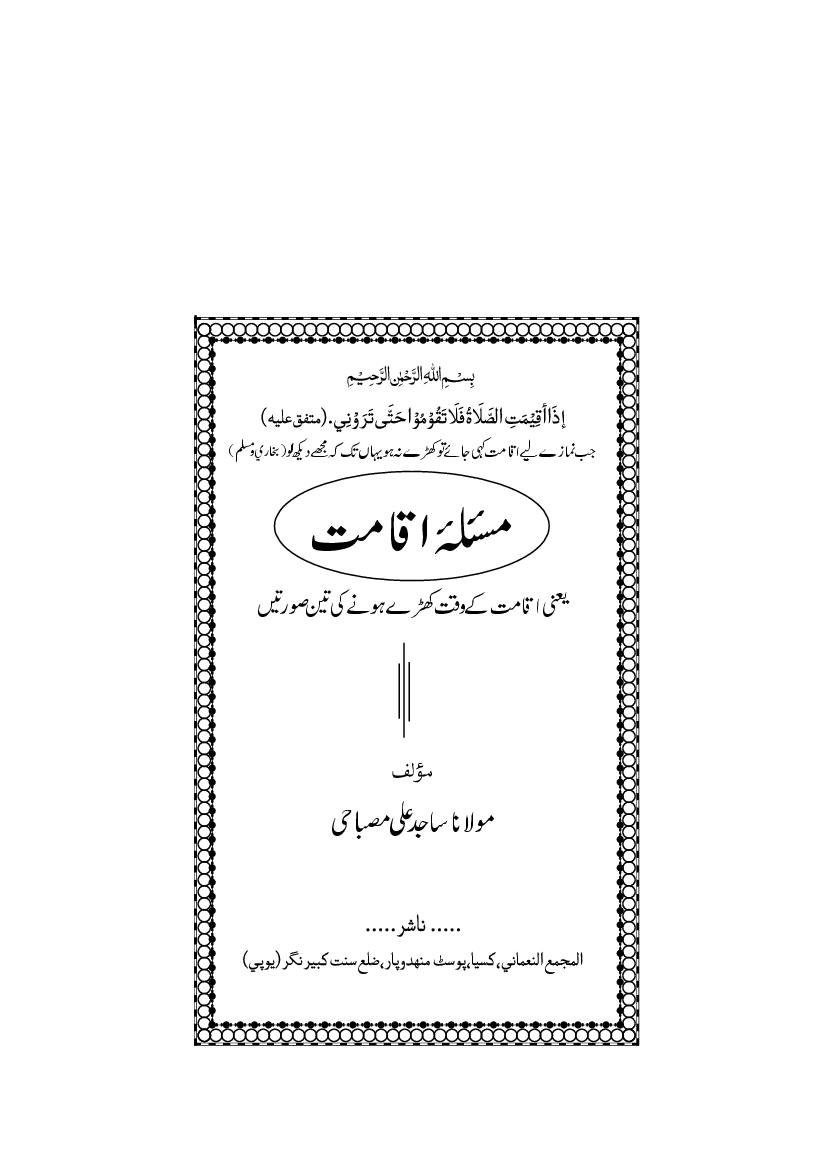 بِسْمِ اللّٰهِ الرَّحْمٰنِ الرَّحِيْمِ
إذَا أقِيْمَتِ الصَّلَاةُ فَلَا تَقُوْمُوْا حَتَّى تَرَوْنِي. (متفق عليه)
جب نماز کے لیے اقامت کہی جائے تو کھڑے نہ ہو یہاں تک کہ مجھے دیکھ لو (بخاري و مسلم)
مسئلۂ اقامت
یعنی اقامت کے وقت کھڑے ہونے کی تین صورتیں
مؤلف
مولانا ساجد علی مصباحی
..... ناشر .....
المجمع النعماني، کسیا، پوسٹ منھدوپار، ضلع سنت کبیر نگر (یوپي)